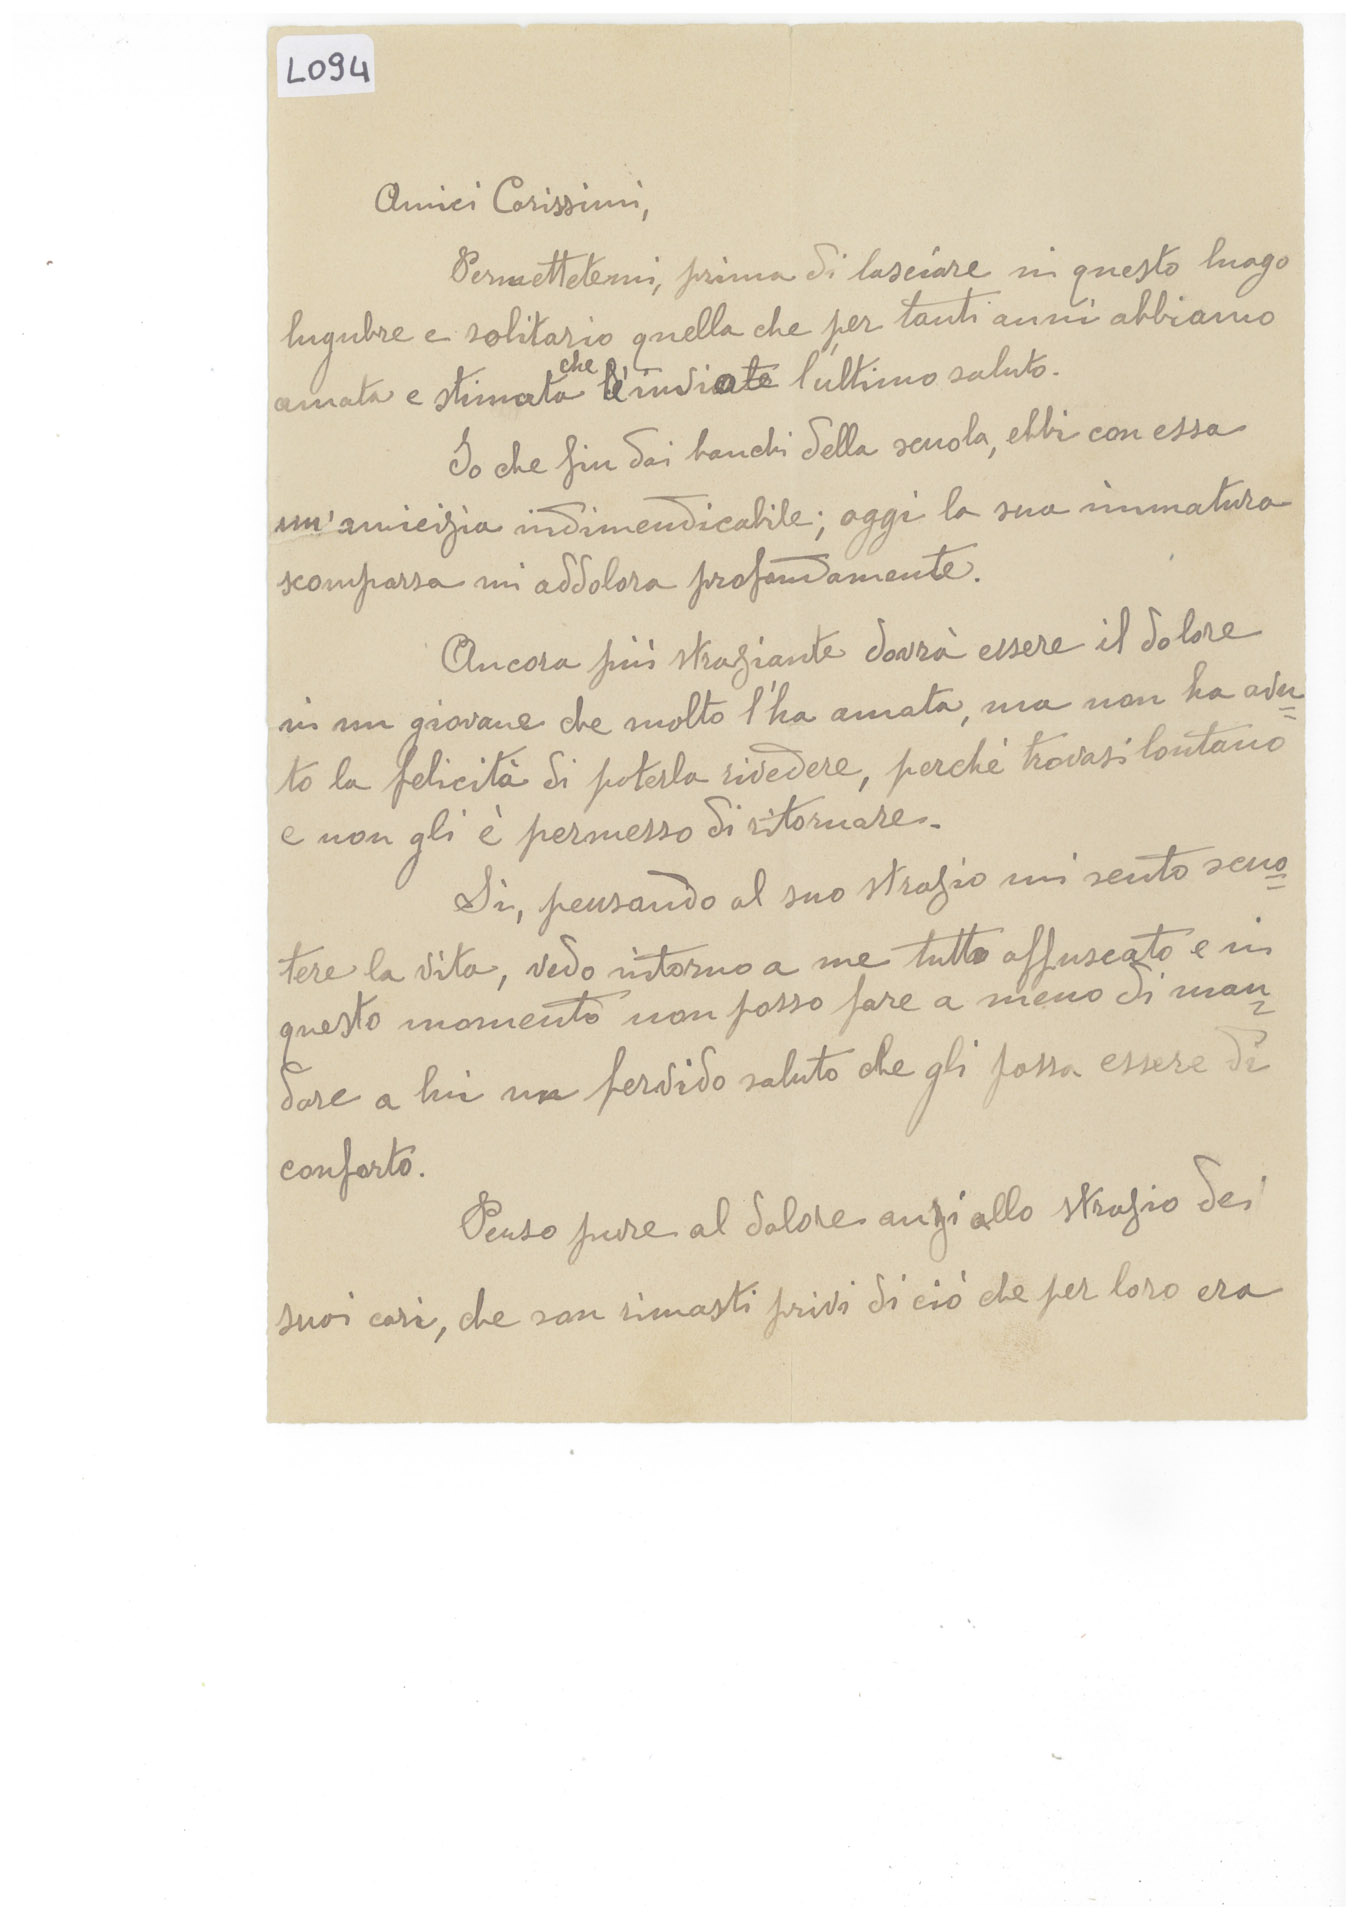 L094
Amici Carissimi,
Permettetemi, prima di lasciare in questo luogo
lugubre e solitario quella che per tanti anni abbiamo
amata e stimata che l'inviate l'ultimo saluto.
Io che fin dai banchi della scuola, ebbi con essa
un'amicizia indimendicabile; oggi la sua immatura
scomparsa mi addolora profondamente.
Ancora più straziante dovrà essere il dolore
in un giovane che molto l'ha amata, ma non ha avu=
to la felicità di poterla rivedere, perchè trovasi lontano
e non gli è permesso di ritornare.
Si, pensando al suo strazio mi sento scuo=
tere la vita, vedo intorno a me tutto affuscato e in
questo momento non posso fare a meno di man=
dare a lui un fervido saluto che gli possa essere di
conforto.
Penso pure al dolore anzi allo strazio dei
suoi cari, che son rimasti privi di ciò che per loro era